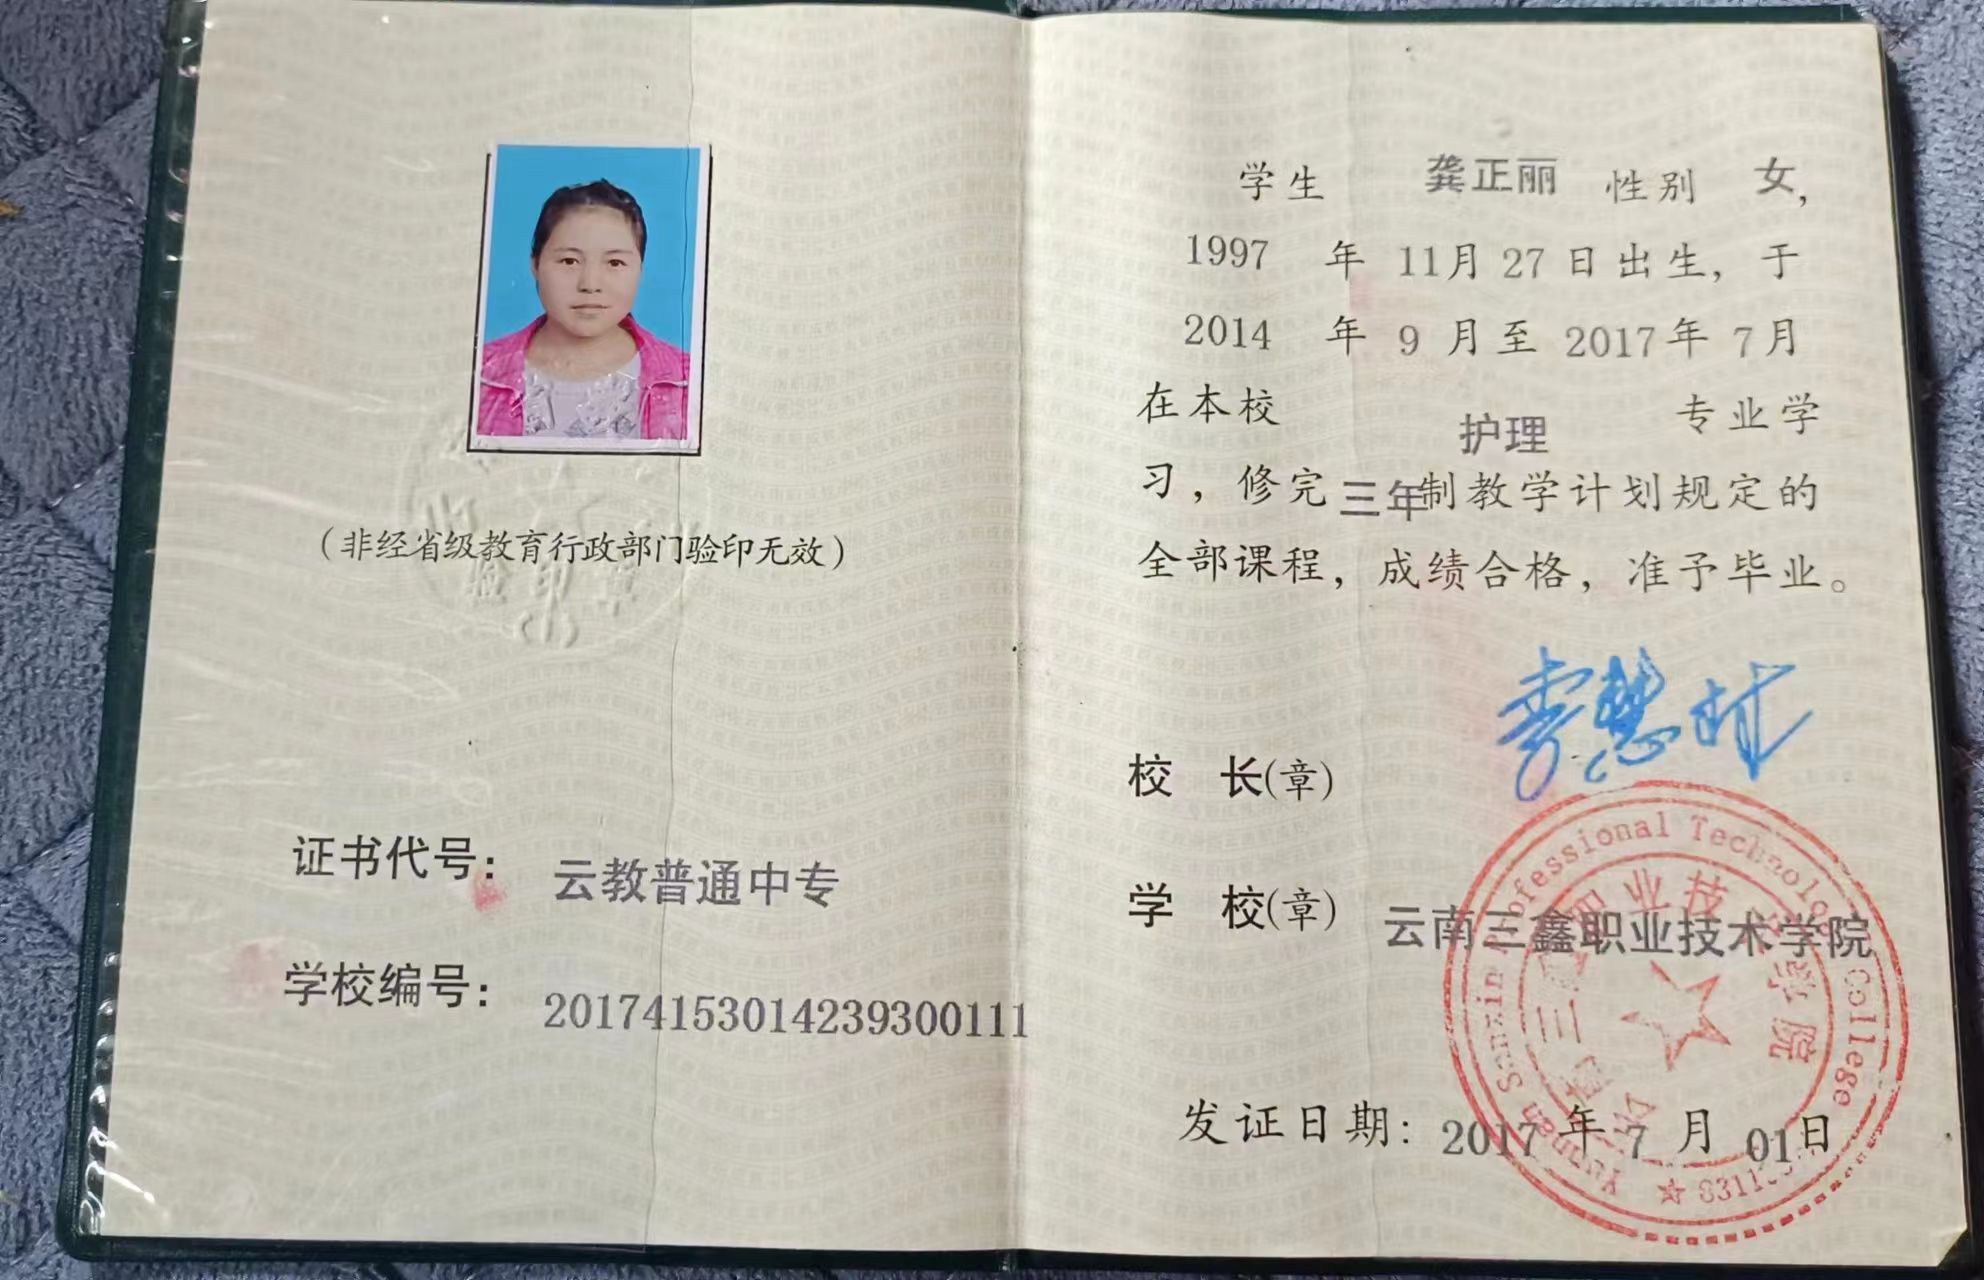 （非经省级教育行政部门验印无效）
证书代号： 云教普通中专
学校编号： 20174153014239300111
学生 龚正丽 性别 女，
1997 年 11月 27 日出生，于
2014 年 9 月至 2017年 7月
在本校 护理 专业学
习，修完三年制教学计划规定的
全部课程，成绩合格，准予毕业。
校 长(章)
学 校(章) 云南三鑫职业技术学院
发证日期：2017 年 7 月 01日
Yunnan Sanxin Professional Technology College